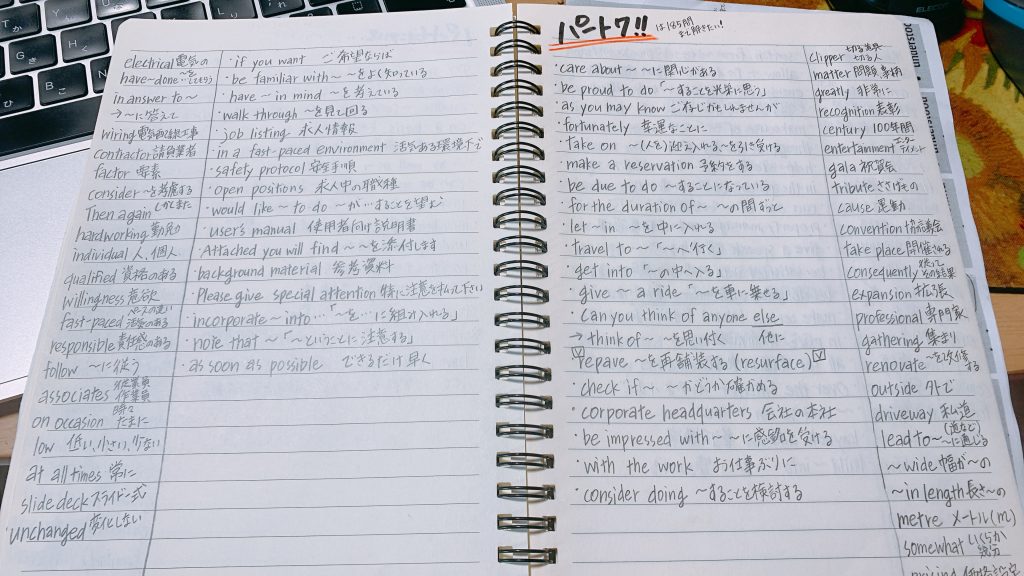 electrical 電気の
have-done ～をしてもらう
in answer to～
→～に答えて
wiring 電気配線工事
contractor 請負業者
factor 要素
consider ～を考慮する
Then again しかしまた
hardworking 勤勉な
individual 人、個人
qualified 資格のある
willingness 意欲
fast-paced ペースの速い 活気のある
responsible 責任感のある
follow ～に従う
associates 従業員 作業員
on occasion 時々 たまに
low 低い,小さい,少ない
at all times 常に
slide deck スライド一式
unchanged 変化しない
・if you want ご希望ならば
・be familiar with～ ～をよく知っている
・have～in mind ～を考えている
・walk through ～を見て回る
・job listing 求人情報
・in a fast-paced environment 活気ある環境下で
・safety protocol 安全手順
・open positions 求人中の職種
・would like～to do ～が…することを望む
・user's manual 使用者向け説明書
・Attached you will find～ ～を添付します
・background material 参考資料
・Please give special attention 特に注意を払って下さい
・incorporate～into…「～を…に組み入れる」
・note that～「～ということに注意する」
・as soon as possible できるだけ早く
パート7!! は185問まで解きたい!
・care about～ ～に関心がある
・be proud to do ～「～することを光栄に思う」
・as you may know ご存じかもしれませんが
・fortunately 幸運なことに
・take on ～(人を)迎え入れる～を引き受ける
・make a reservation 予約をする
・be due to do ～することになっている
・for the duration of～ ～の間ずっと
・let～in ～を中に入れる
・travel to～「～へ行く」
・get into「～の中へ入る」
・give～a ride「～を車に乗せる」
・can you think of anyone else
→think of～ ～を思い付く 他に
repave ～を再舗装する(resurface)
・check if～ ～かどうか確かめる
・corporate headquarters 会社の本社
・be impressed with～ ～に感銘を受ける
・with the work お仕事ぶりに
・consider doing ～することを検討する
clipper 切る道具 切る人
matter 問題 事柄
greatly 非常に
recognition 表彰
century 100年間
entertainment エンターテイメント
gala 祝賀会
tribute ささげもの
cause 運動
convention 協議会
take place 開催される
consequently 従って その結果
expansion 拡張
professional 専門家
gathering 集まり
renovate ～を改修する
outside 外で
driveway 私道
lead to～ (道など)～に通じる
～wide 幅が～の
～in length 長さ～の
metre メートル(m)
somewhat いくらか 幾分
pricing 価格設定